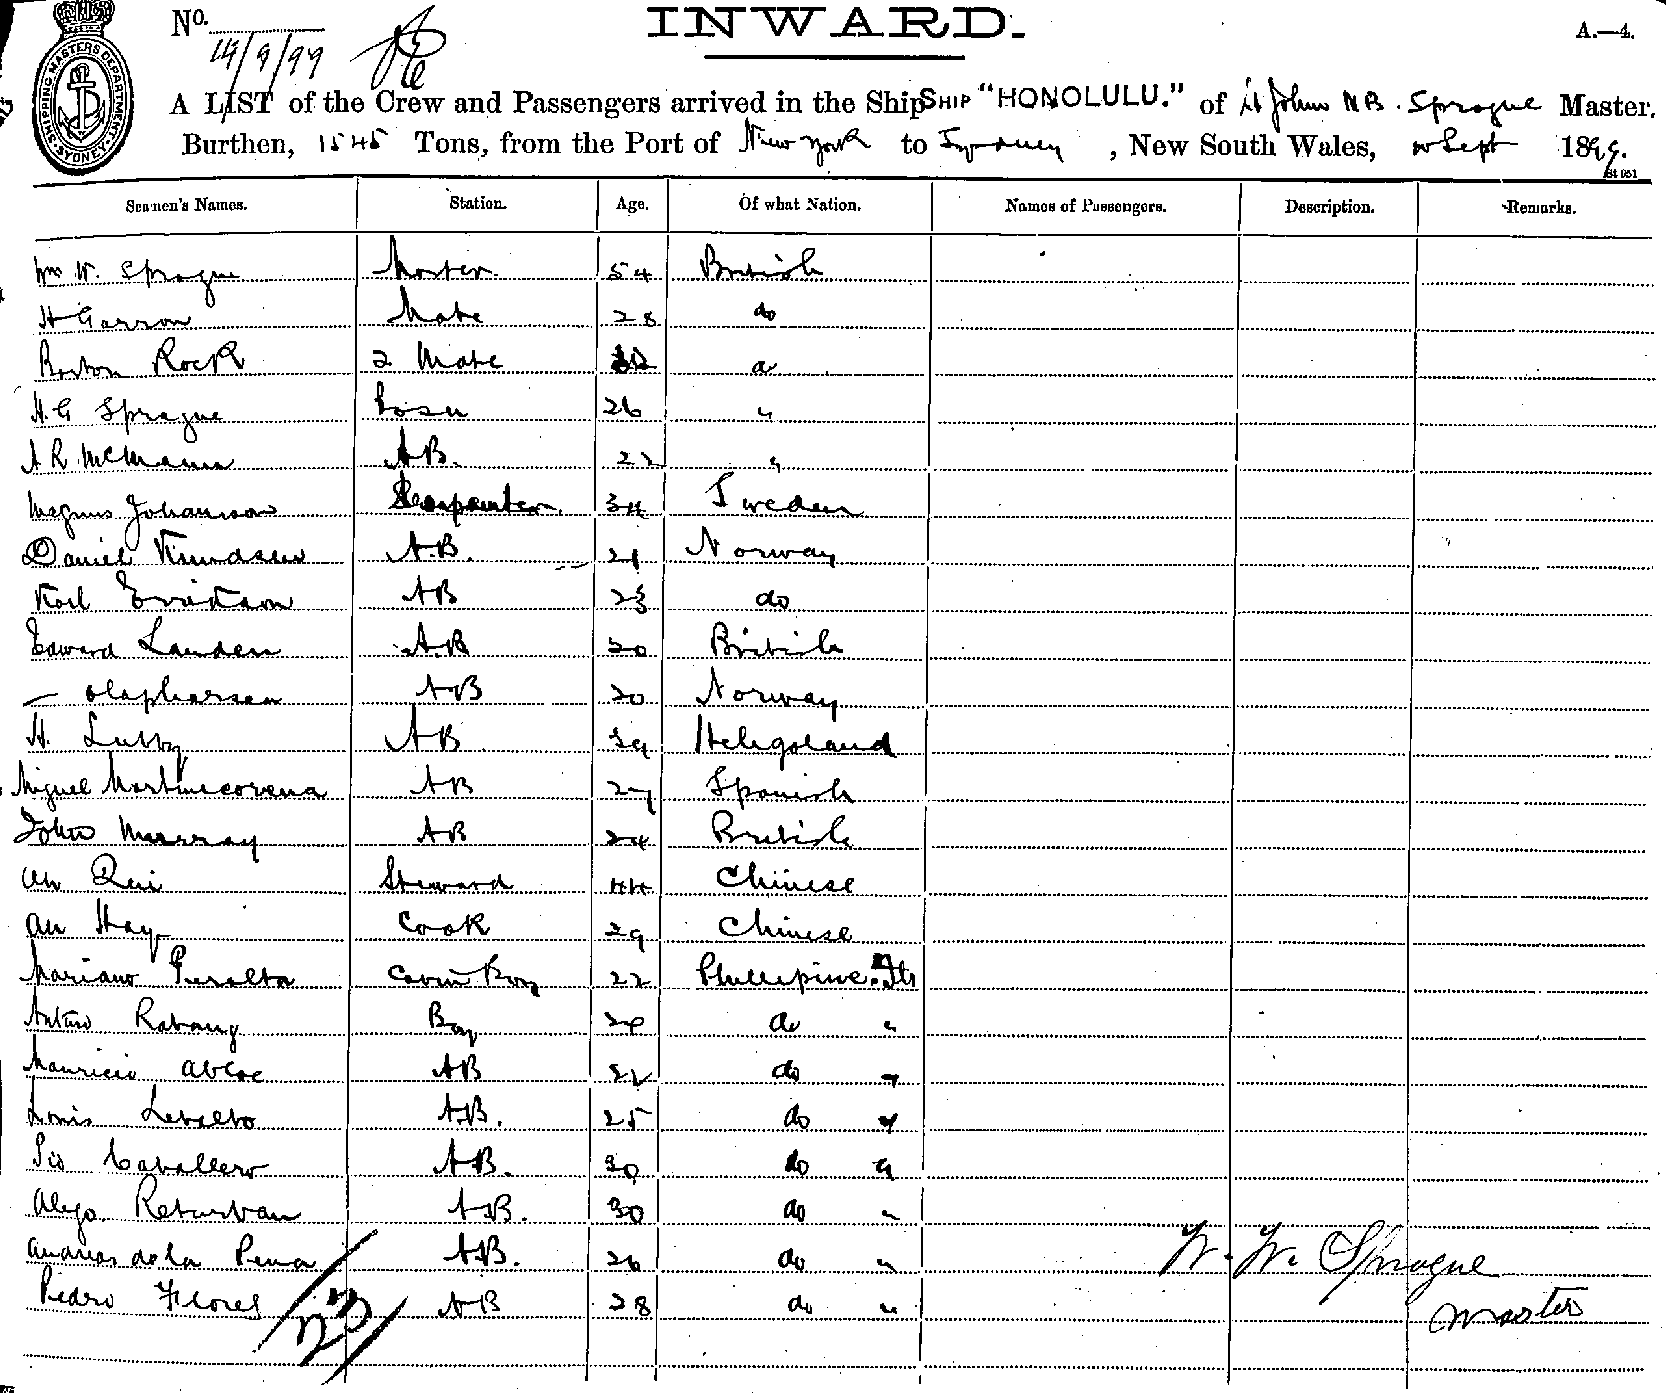 No.
14/9/99
INWARD.
A.—4.
SHIPPING MASTERS DEPARTMENT SYDNEY
A LIST of the Crew and Passengers arrived in the Ship SHIP "HONOLULU." of St John NB. Sprague Master,
Burthen, 1545 Tons, from the Port of New York to Sydney, New South Wales, Sept 1899.
Seamen's Names. Station. Age. Of what Nation. Names of Passengers. Description. Remarks.
Wm W. Sprague Master 54 British
H Garron Mate 28 do
Rock 2 Mate
H. G Sprague Bosn 26 "
A R McMann AB. 22 "
Magnus Johanson Carpenter 34 Sweden
Daniel Knudsen A.B. 21 Norway
Karl Erickson AB 23 do
Edward Landen A.B 20 British
— Olaf Larsen AB 20 Norway
H. Lubby AB 39 Heligoland
Miguel Martinecorena AB 27 Spanish
John Murray AB 24 British
Ah Qui Steward 44 Chinese
Ah Hay Cook 29 Chinese
Mariano Peralta Cabin Boy 22 Phillipine Is
Arturo Rabang Boy 24 do "
Mauricio AB 32 do "
Louis AB. 25 do "
Pio Caballero AB. 30 do "
Alejo. Returban AB. 30 do "
Andreas de la Pena AB. 26 do "
Pedro Flores AB 28 do "
23
W. W. Sprague
Master